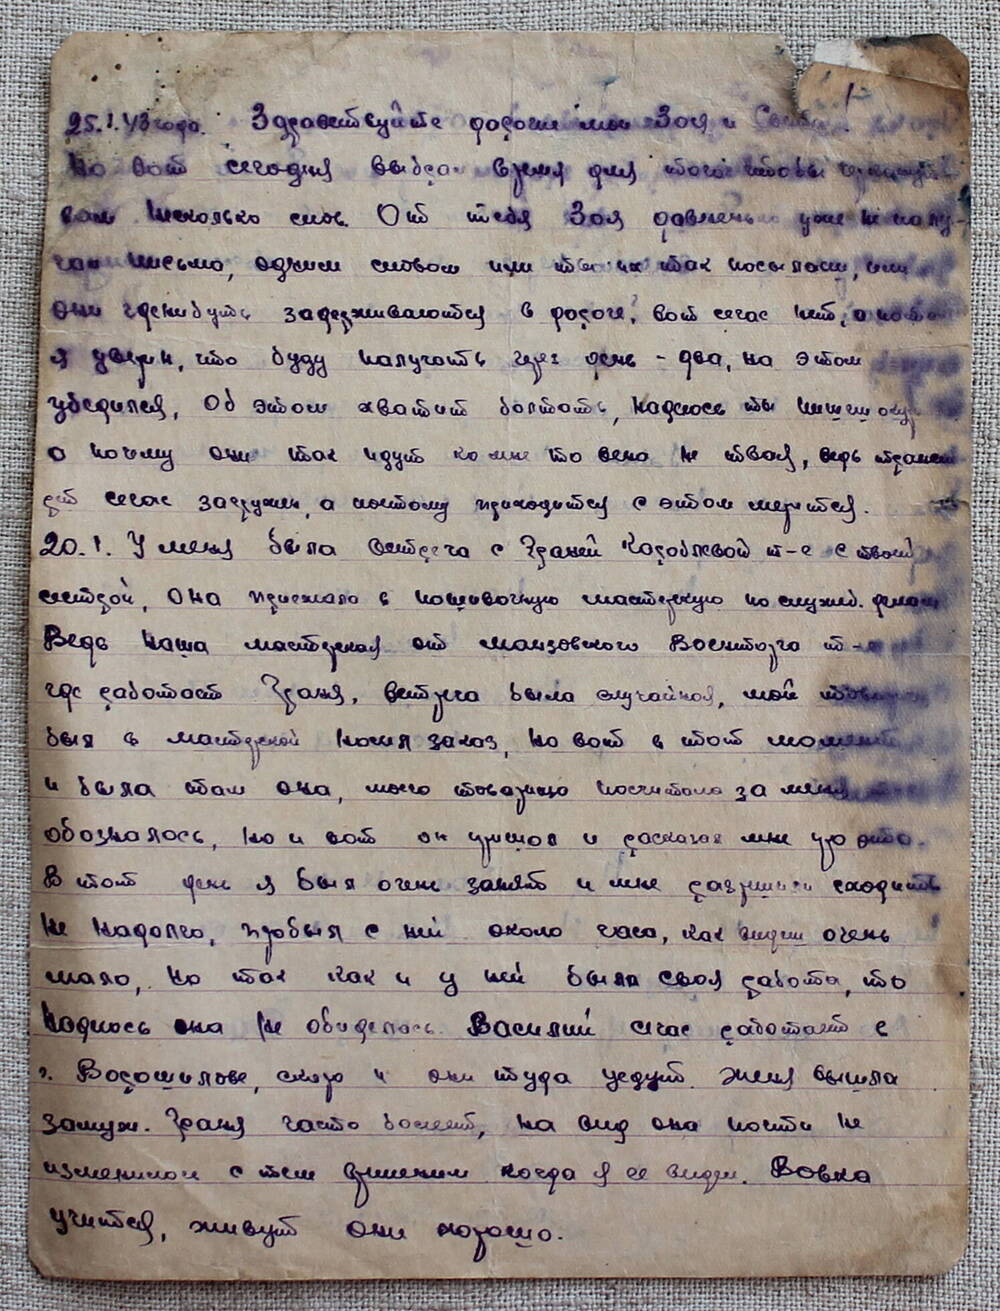 25.1.43 года. Здравствуйте дорогие мои Зоя и
Но вот сегодня выбрал время для того чтобы
вам несколько слов. От тебя Зоя давненько уже не полу-
чал письмо, одним словом или ты их так посылаеш, или
они гденибуть задерживаются в дороге, вот сечас нет, а потом
я уверен, что буду получать через день - два, на этом
убедился, Об этом хватит болтать, надеюсь ты пишеш
а почему они так идут ко мне то вена не твая, ведь транспо
рт сечас загружен, а поэтому приходится с этом мерится.
20.1. У меня была встреча с Граней Кораблевой т-е с твоей
сестрой, Она приежала в пошивочную мастерскую по служеб. делам
Ведь наша мастерская от Военторга т-
где работает Граня, встреча была случайная, мой товарищ
был в мастерской носил заказ, но вот в тот момент
и была там она, моего товарища посчитала за меня
обозналась, но и вот он пришол и расказал мне про это.
В тот день я был очень занят и мне разрешили сходить
не надолго, пробыл с ней около часа, как видеш очень
мало, но так как и у ней была своя работа, то
надеюсь она не обиделась. Василий сечас работает в
г. Ворошилове, скоро и они туда уедут. Женя вышла
замуж. Граня часто болеет, на вид она почти не
изменилась с тем временем когда я её видел. Вовка
учится, живут они хорошо.